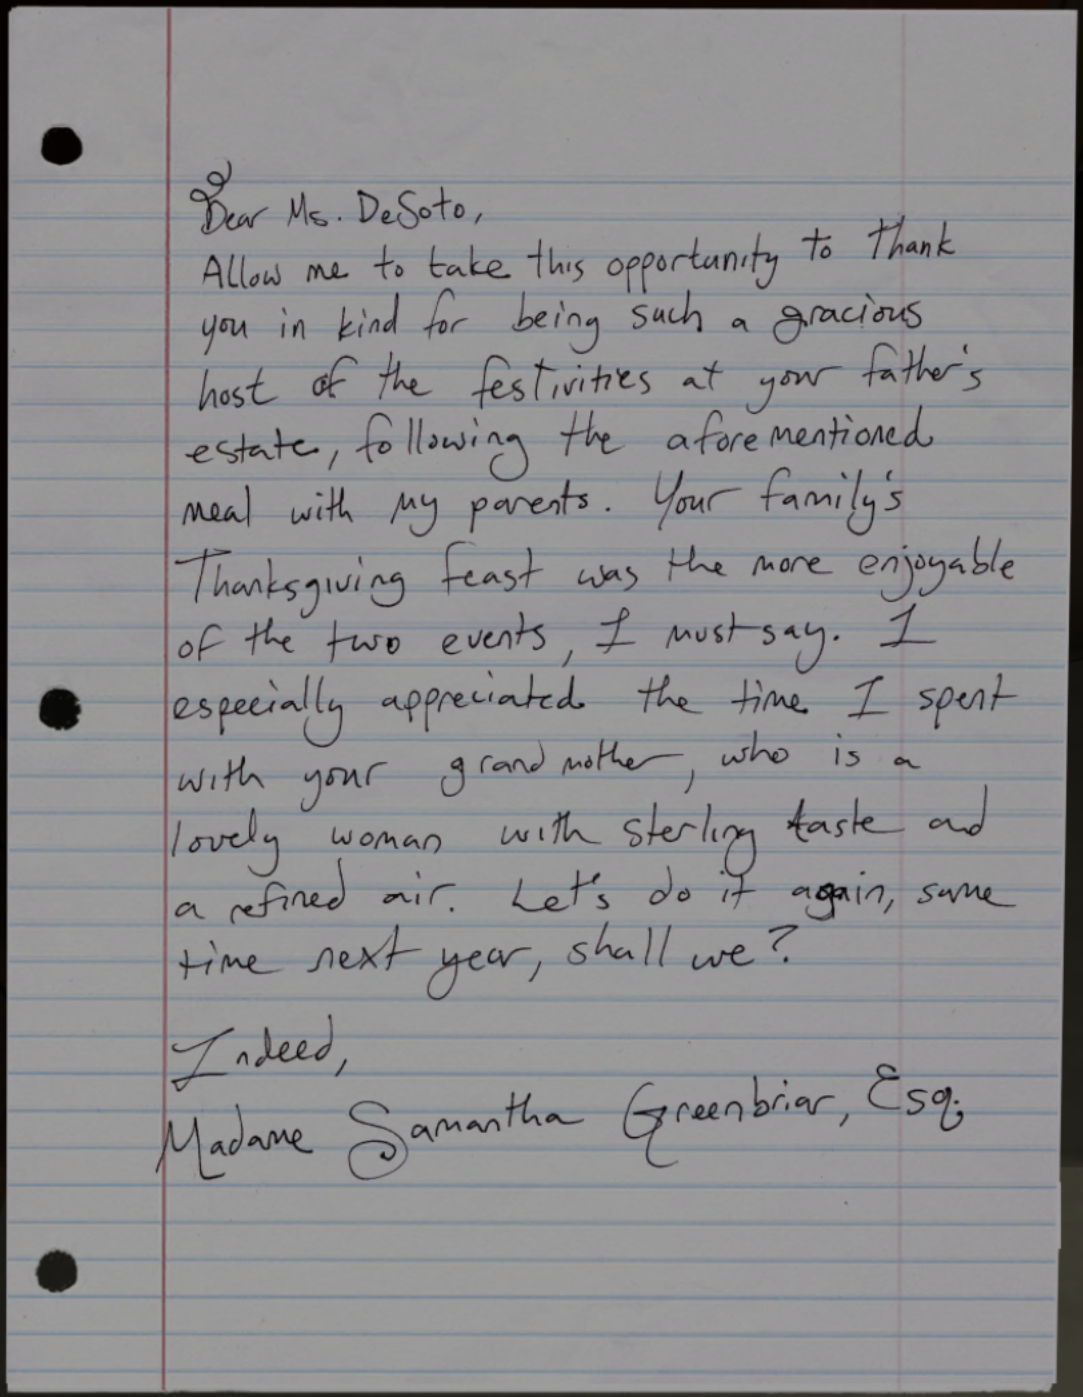 Dear Ms. DeSoto,
Allow me to take this opportunity to thank
you in kind for being such a gracious
host of the festivities at your father's
estate, following the aforementioned
meal with my parents. Your family's
Thanksgiving feast was the more enjoyable
of the two events, I must say. I
especially appreciated the time I spent
with your grandmother, who is a
lovely woman with sterling taste and
a refined air. Let's do it again, same
time next year, shall we?
Indeed,
Madame Samantha Greenbriar, Esq.